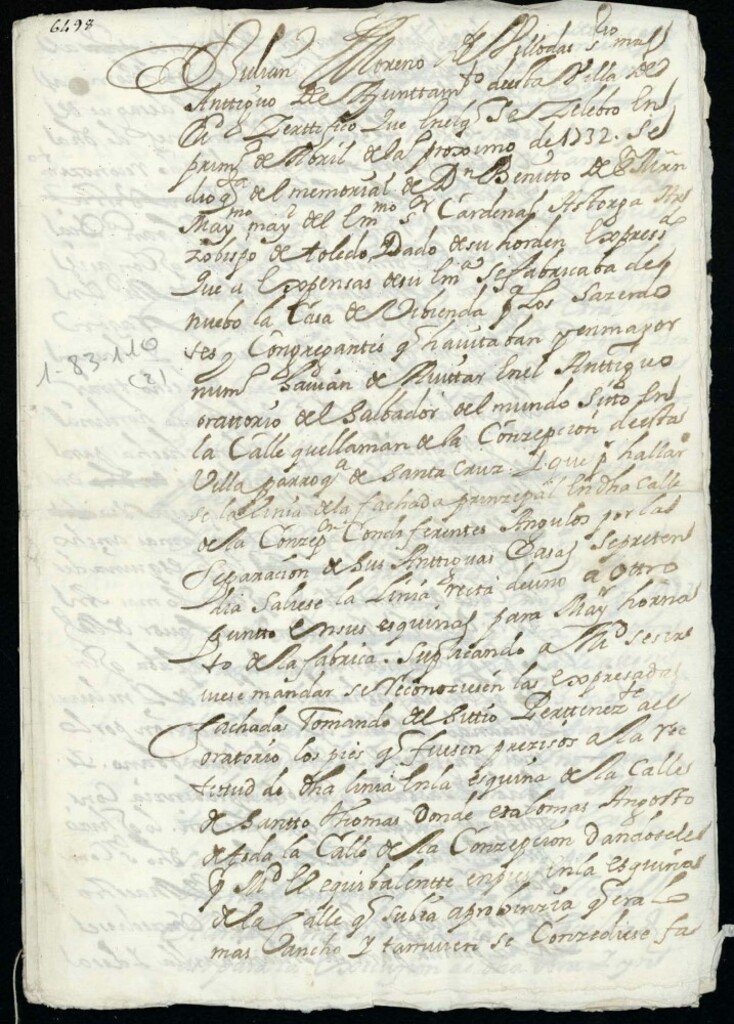 6498
Julian Moreno de Villodas ss.no mas
Anttiguo de Ayunttam.to de esta Villa de
M.d Zerttifico que en el q.e se Zelebro en
prim.o de Abril de la proximo de 1732. Se
dio q.ta del memorial de D.n Benitto de
May.mo may.r del Em.mo S.r Cardenal Astorga Ar
zobispo de toledo, Dado de su horden Expressa
Que a Expensas de su Em.a se fabricaba de
nuebo la Casa de Vibienda p.a los Sazerdo
tes y Congregantes q.e havitaban y en mayor
num.o havian de Avittar en el Anttiguo
orattorio del Salbador del mundo Sitto en
la Calle que llaman de la Conzepcion de esta
Villa parroq.a de Santa Cruz. Y que p.r hallar
se la linia de la fachada prinzepal en dha Calle
de la Conzep.on Con diferentes Angulos por las
Separacion de sus Anttiguas Casas se preten
dia Saliese la linia recta de uno a ottro
puntto en sus esquinas para May.r horna
to de la fabrica. Suplicando a M.d se sir
viese mandar se Reconoziesen las expresadas
fachadas Tomando del Sittio Perttenez.te a el
oratorio los pies q.e fuesen prezisos a la rec
titud de dha linia en la esquina de la Calle
de Santto thomas Donde era lo mas Angosto
de toda la Calle de la Conzepcion dandosele
p.r M.d El equibalentte en pies en la esquina
de la Calle q.e subia a probinzia q.e era lo
mas Ancho y tamvien se Conzediese fa
1-83-110
(2)